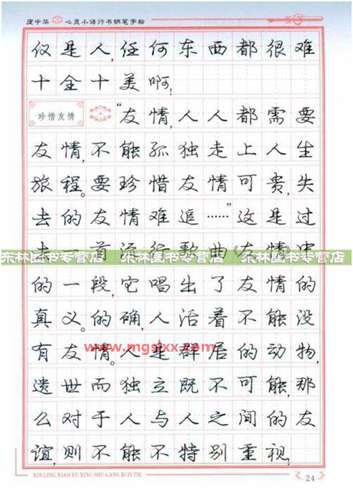 庹中华 心灵小语行书钢笔字帖
仅是人,任何东西都很难
十全十美啊!
珍惜友情 “友情,人人都需要
友情,不能孤独走上人生
旅程。要珍惜友情可贵,失
去的友情难追……”这是过
去一首流行歌曲《友情》中
东林图书专营店 东林图书专营店 东林图书专营店
的一段,它唱出了友情的
真义。的确,人活着不能没
www.mgsjxx.com
有友情。人是群居的动物,
遗世而独立既不可能,那
么对于人与人之间的友
谊,则不能不特别重视,
24
XINLING XIAO YU XING SHU GANG BI ZI TIE